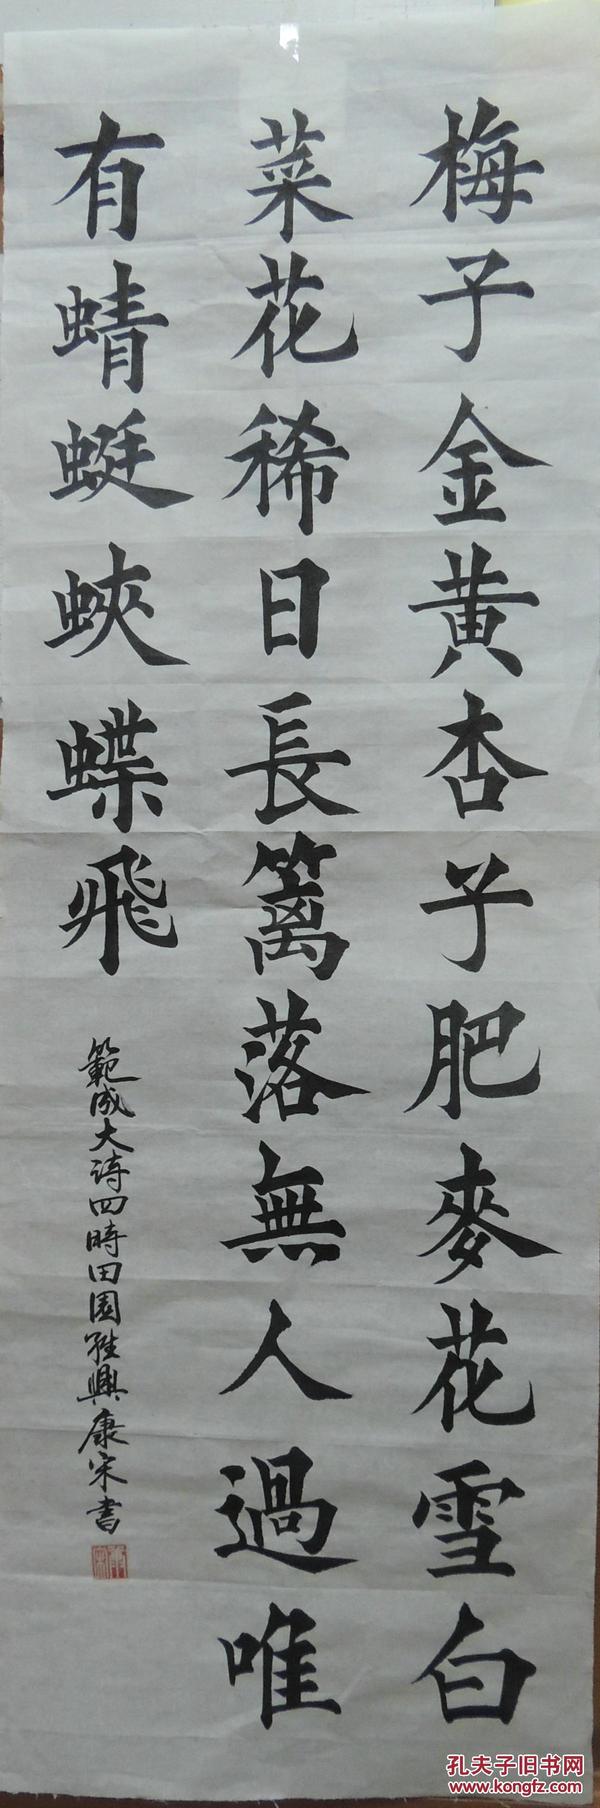 梅子金黄杏子肥麥花雪白
菜花稀日長籬落無人過唯
有蜻蜓蛺蝶飛
範成大诗四時田園雜興康宋書
孔夫子旧书网
www.kongfz.com